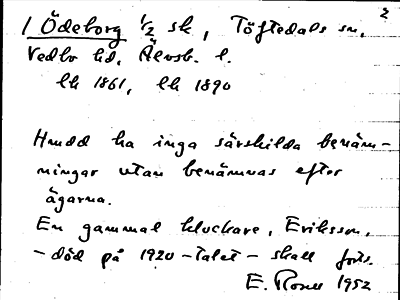 2
1 Ödeborg 1/2 sk, Töftedals sn,
Vedbo hd, Älvsb. l.
lh 1861, lh 1890
Hmdd ha inga särskilda benäm-
ningar utan benämnas efter
ägarna.
En gammal kluckare, Eriksson,
- död på 1920-talet - skall förts.
E. Rosell 1952